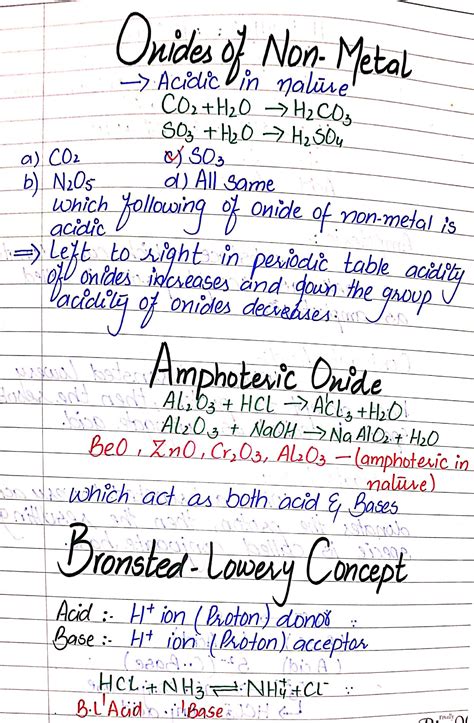 Oxides of Non-Metal
→ Acidic in nature
CO2 + H2O → H2CO3
SO3 + H2O → H2SO4
a) CO2 c) SO3
b) N2O5 d) All same
which following of oxide of non-metal is
acidic
⇒ Left to right in periodic table acidity
of oxides increases and down the group
acidity of oxides decreases.
Amphoteric Oxide
Al2O3 + HCl → AlCl3 + H2O
Al2O3 + NaOH → NaAlO2 + H2O
BeO, ZnO, Cr2O3, Al2O3 — (amphoteric in
nature)
which act as both acid & Bases
Bronsted-Lowery Concept
Acid :- H+ ion (Proton) donor
Base :- H+ ion (Proton) acceptor
HCL + NH3 ⇌ NH4+ + Cl-
B.L Acid Base